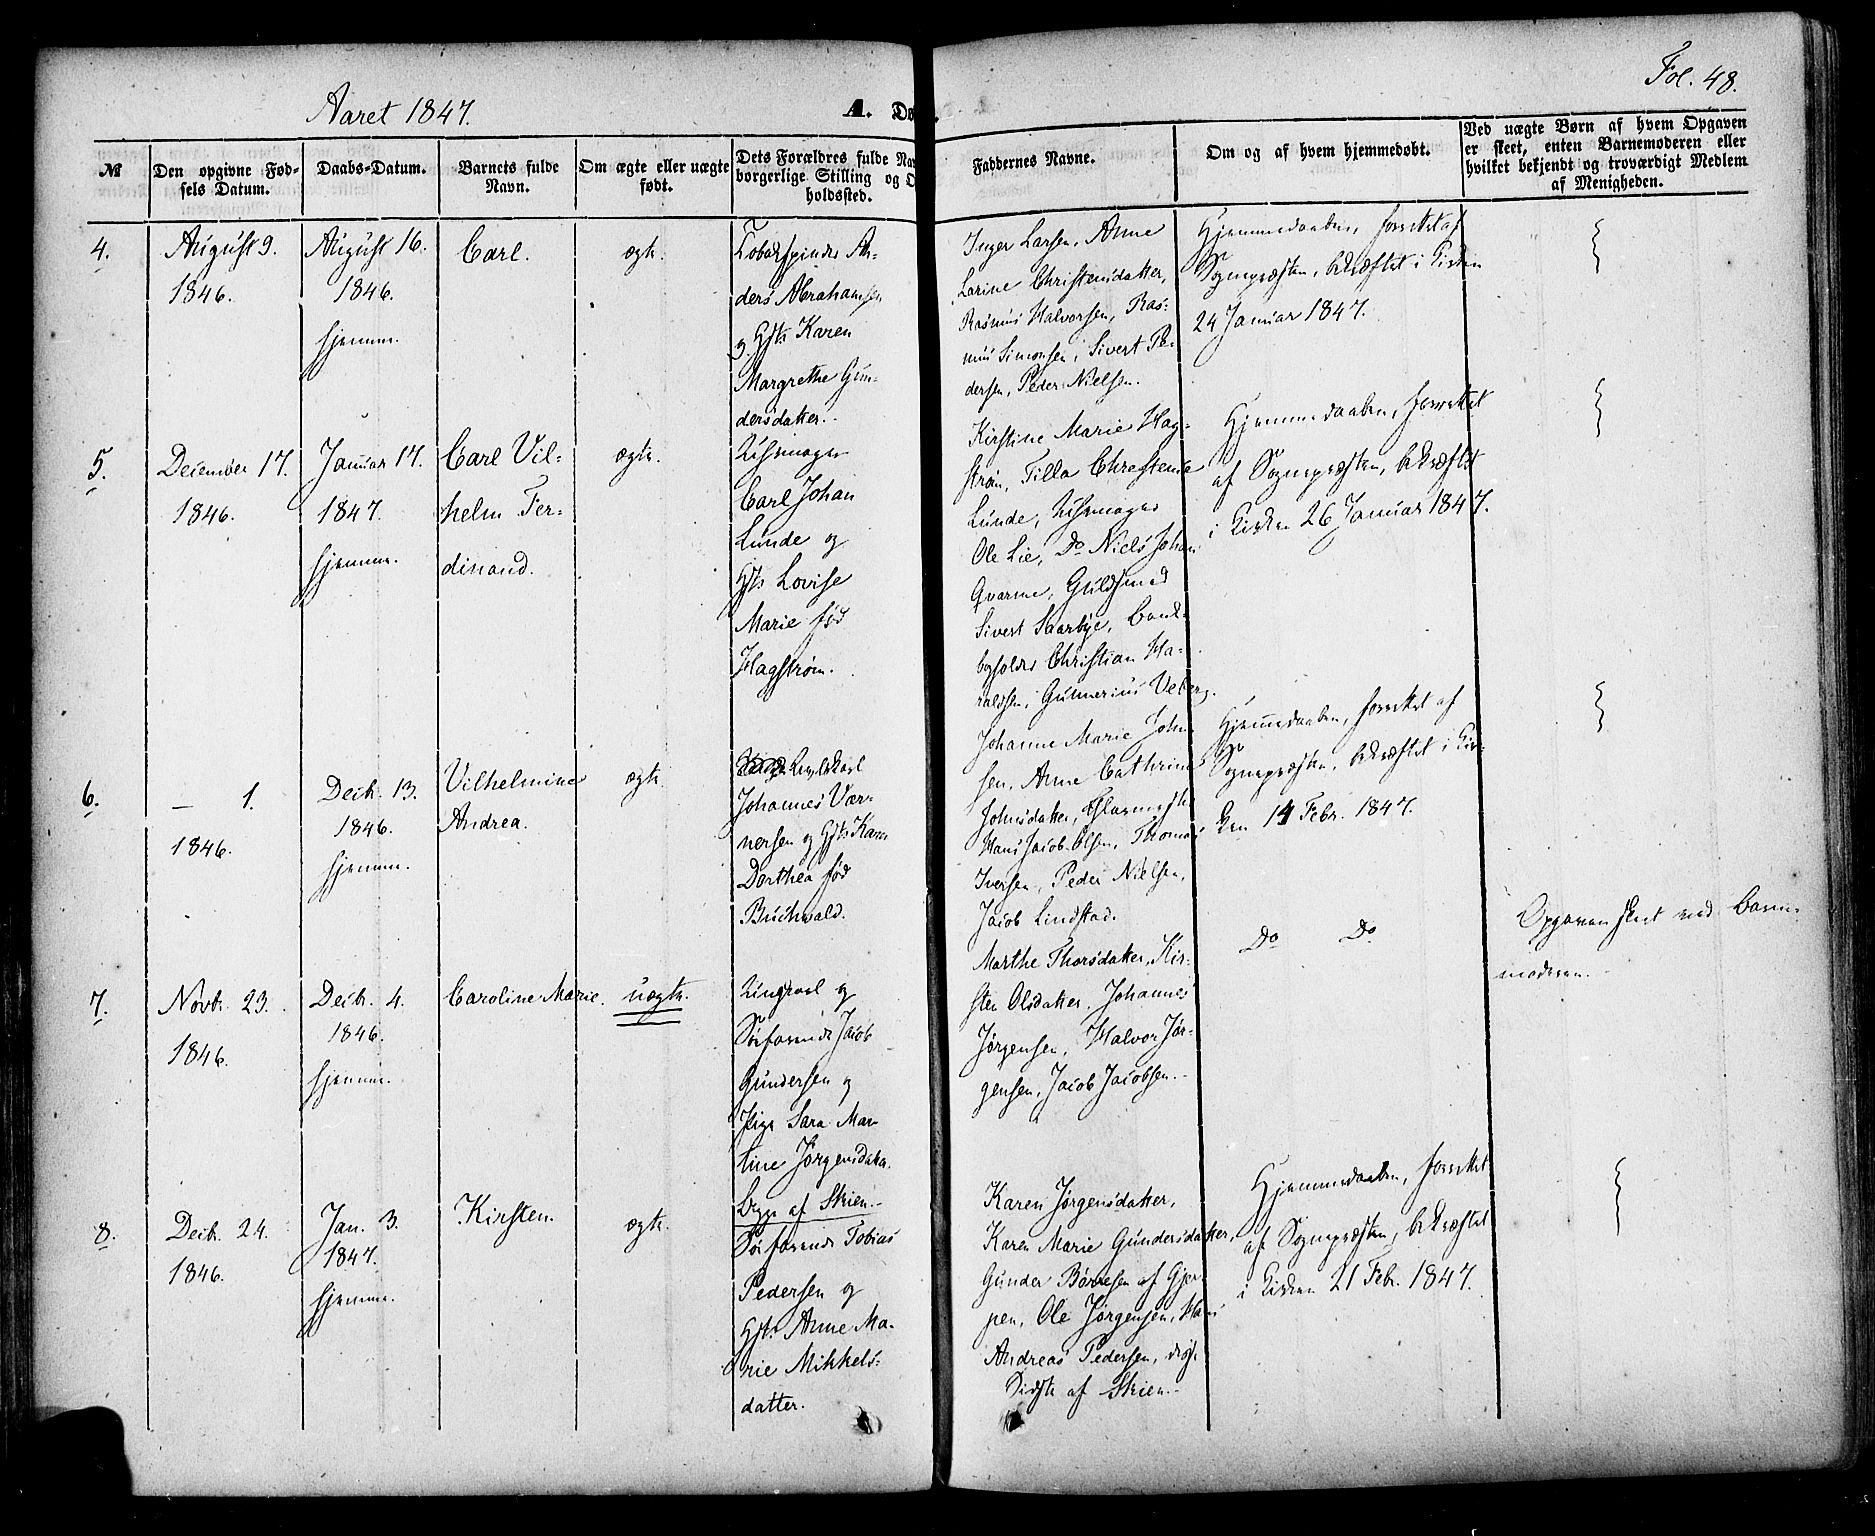 Aaret 1847.
A. Dø
Fol. 48.
№
Den opgivne Fød-
sels Datum.
Daabs-Datum.
Barnets fulde
Navn.
Om ægte eller uægte
født.
Dets Forældres fulde Nav
borgerlige Stilling og O
holdssted.
Faddernes Navne.
Om og af hvem hjemmedøbt.
Ved uægte Børn af hvem Opgaven
er skeet, enten Barnemoderen eller
hvilket bekjendt og troværdigt Medlem
af Menigheden.
4.
August 9.
1846.
August 16.
1846.
hjemme.
Carl.
ægte.
Tobakspinder An-
ders Abrahamsen
og Hst Karen
Margrethe Gun-
dersdatter.
Inger Larsen, Anne
Larine Christensdatter,
Rasmus Halvorsen, Ras-
mus Simonsen, Sivert Pe-
dersen, Peder Nielsen.
Hjemmedaaben, forrettet af
Sognepræsten, bekræftet i Kirken
24 Januar 1847.
5.
December 17.
1846.
Januar 17.
1847.
hjemme.
Carl Vil-
helm Fer-
dinand.
ægte.
Uhrmager
Carl Johan
Lunde og
Hst Lovise
Marie fød
Hagstrøm.
Kirstine Marie Hag-
strøm, Tilla Christence
Lunde, Uhrmager
Ole Lie, Do Niels Johan
Qvarme, Guldsmed
Sivert Saarbye, Cand-
Christian Ha-
raldsen, Gunnerius Veberg.
Hjemmedaaben, forrettet
af Sognepræsten, bekræftet
i Kirken 26 Januar 1847.
6.
— 1.
1846.
Decbr. 13.
1846.
hjemme.
Vilhelmine
Andrea.
ægte
Johannes Vær-
nersen og Hst Karen
Dorthea fød
Buchwald.
Johanne Marie John-
sen, Anne Cathrine
Johnsdatter, Glarmester
Hans Jacob Olsen, Thomas
Iversen, Peder Nielsen,
Jacob Lindstad.
Hjemmedaaben, forrettet af
Sognepræsten, bekræftet i Kir-
ken 14 Febr. 1847.
7.
Novbr. 23.
1846.
Decbr. 4.
1846.
hjemme.
Caroline Marie.
uægte.
Ungkarl og
Søfarende Jacob
Gundersen og
Pige Sara Mar-
tine Jørgensdatter.
Begge af Skien.
Marthe Thorsdatter, Kir-
sten Olsdatter, Johannes
Jørgensen, Halvor Jør-
gensen, Jacob Jacobsen.
Do Do
Opgaven skeet ved Barne-
moderen.
8.
Decbr. 24.
1846.
Jan. 3.
1847.
hjemme.
Kirsten.
ægte.
Søfarende Tobias
Pedersen og
Hst. Anne Ma-
rie Mikkels-
datter.
Karen Jørgensdatter,
Karen Marie Gundersdatter,
Gunder Børresen af Gjer-
pen, Ole Jørgensen, Hans
Andreas Pedersen, disse
Sidste af Skien.
Hjemmedaaben, forrettet
af Sognepræsten, bekræftet
i Kirken 21 Febr. 1847.